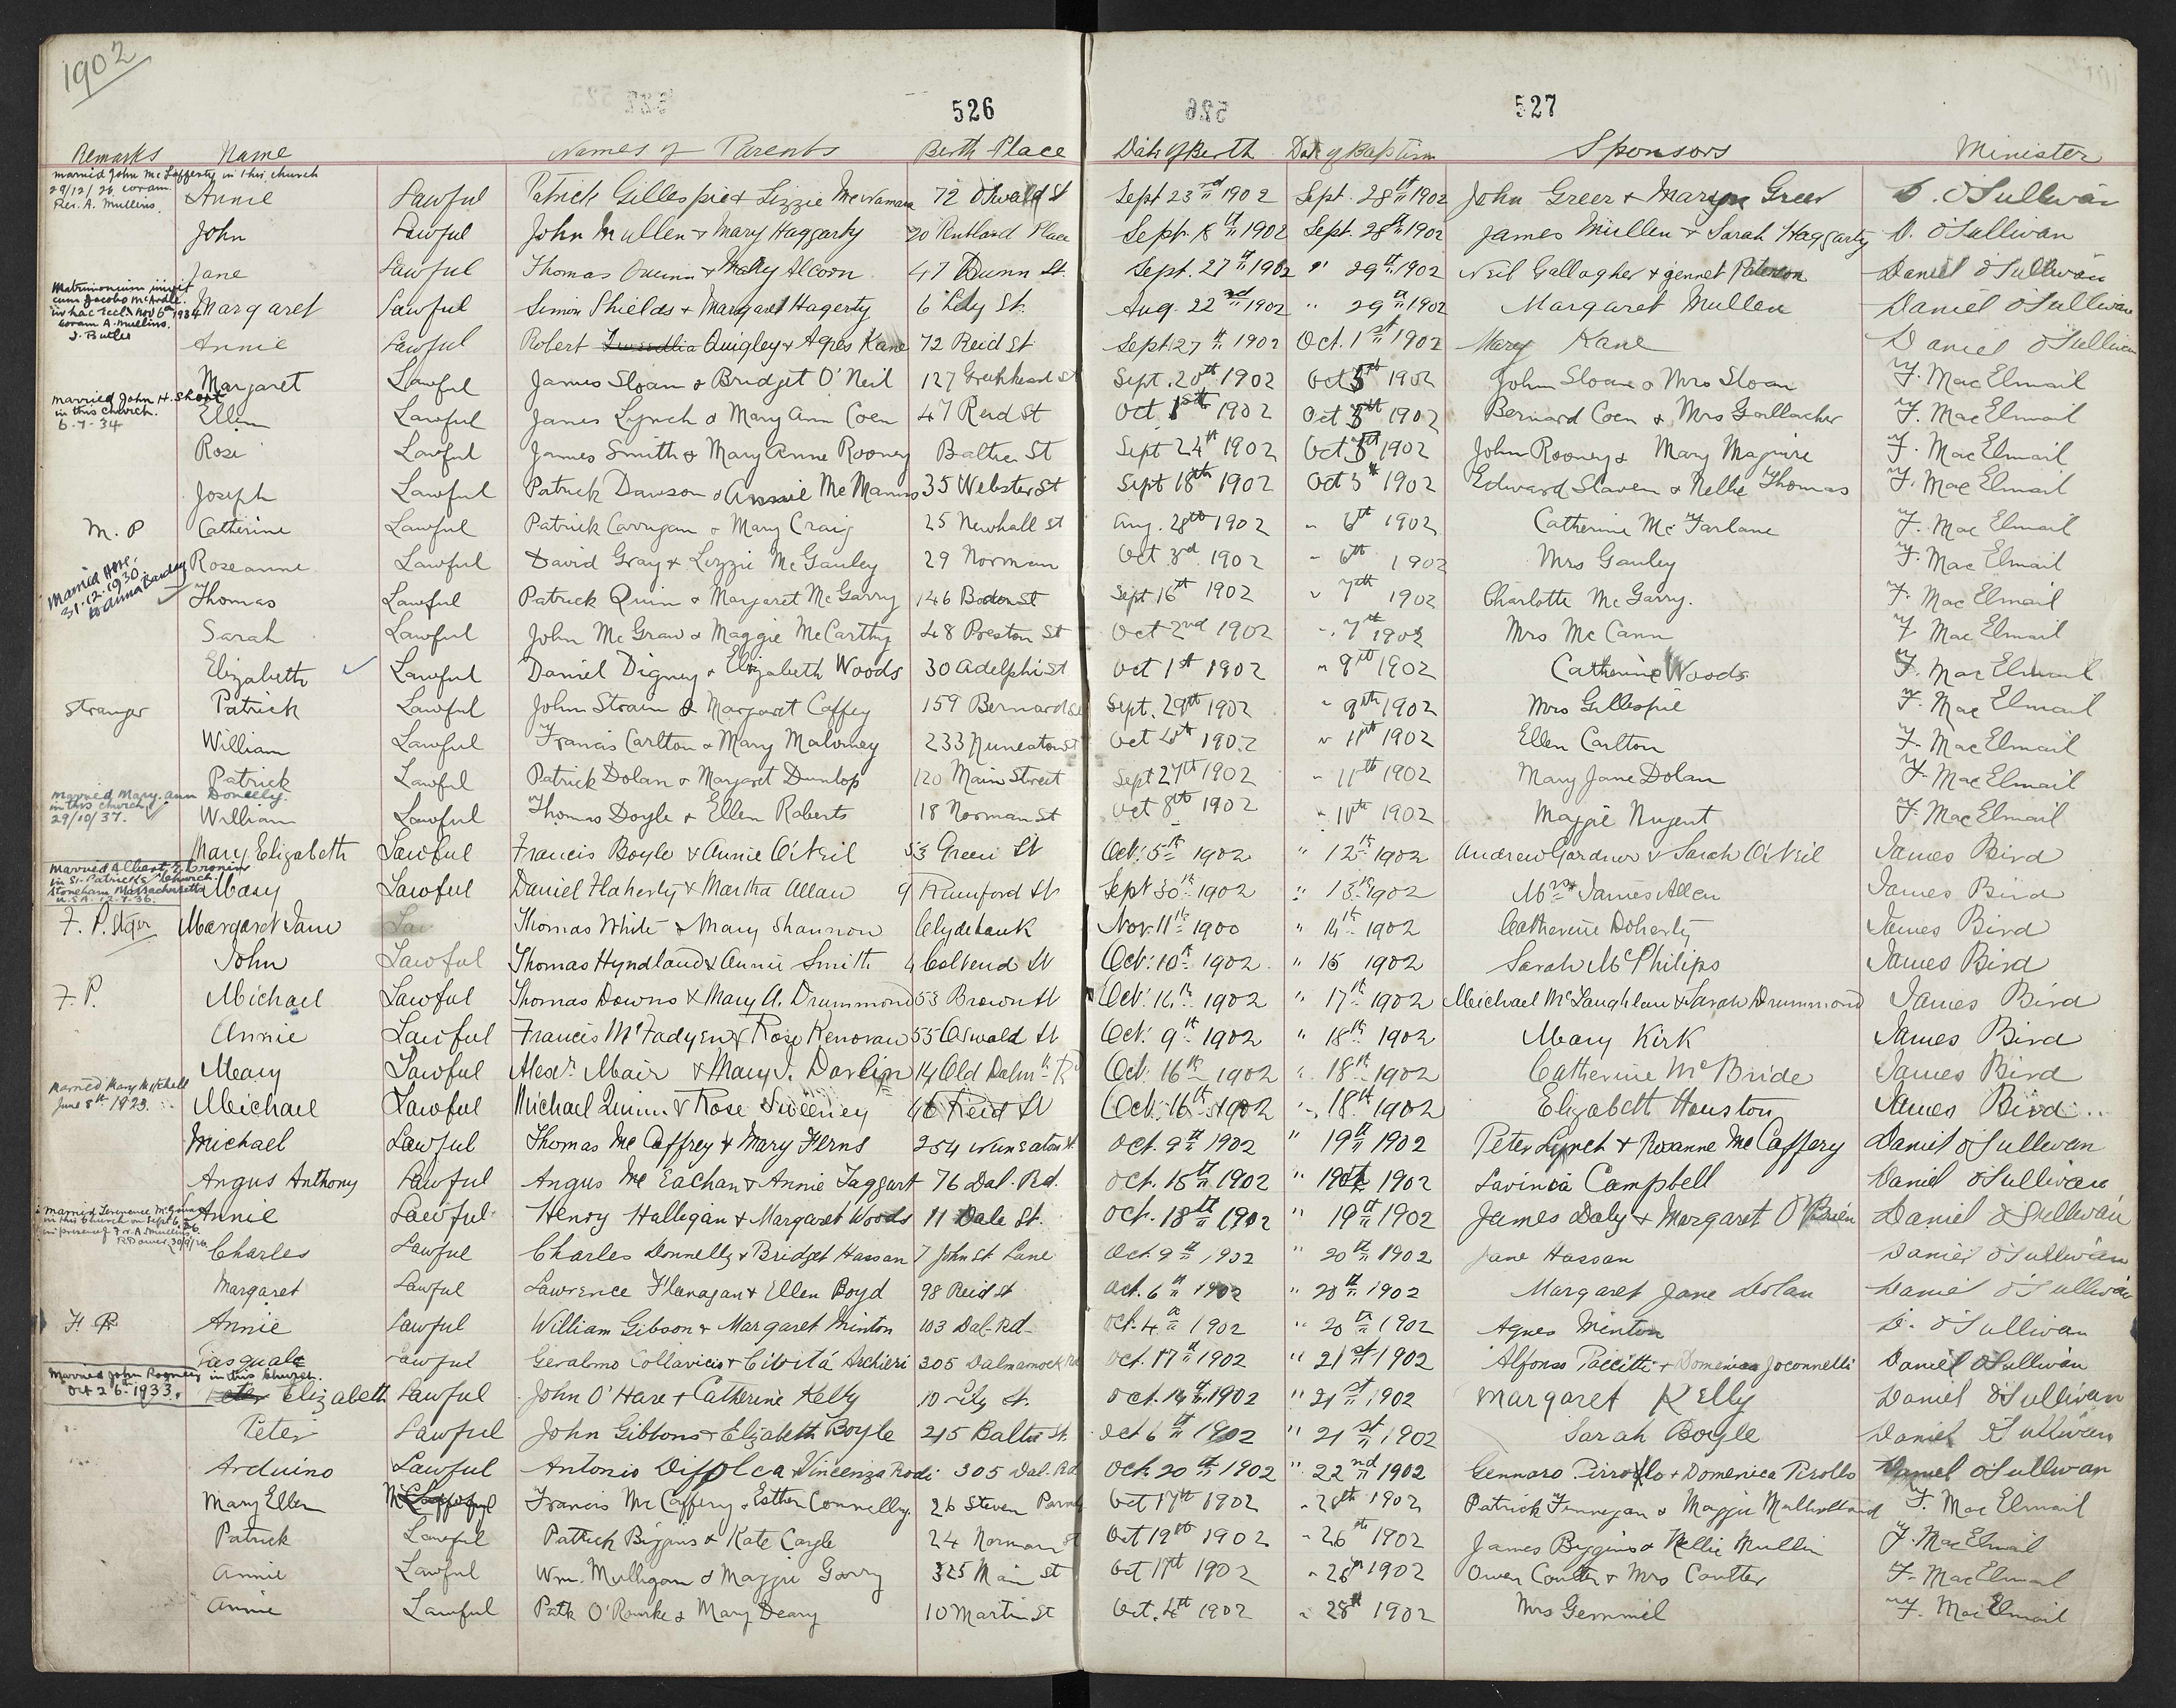 1902
526 527
Remarks Name Names of Parents Birth Place Date of Birth Date of Baptism Sponsors Minister
married John McLafferty in this church
29/12/26 coram
Rev. A. Mullins.
Annie Lawful Patrick Gillespie & Lizzie McNamara 72 Oswald St Sept 23rd 1902 Sept. 28th 1902 John Greer & Mary Greer D. O'Sullivan
John Lawful John Mullen & Mary Haggarty 20 Rutland Place Sept. 18th 1902 Sept. 28th 1902 James Mullen & Sarah Haggarty D. O'Sullivan
Jane Lawful Thomas Quinn & Mary Alcorn 47 Dunn St. Sept. 27th 1902 " 29th 1902 Neil Gallagher & Jennet Paterson Daniel O'Sullivan
Matrimonium iniit
cum Jacobo McArdle
in hac eccl. Nov 6th 1934
coram A. Mullins.
J. Butler
Margaret Lawful Simon Shields & Margaret Hagerty 6 Lily St. Aug. 22nd 1902 " 29th 1902 Margaret Mullen Daniel O'Sullivan
Annie Lawful Robert Quigley & Agnes Kane 72 Reid St Sept. 27th 1902 Oct. 1st 1902 Mary Kane Daniel O'Sullivan
Margaret Lawful James Sloan & Bridget O'Neil 127 Greenhead St Sept. 20th 1902 Oct 5th 1902 John Sloan & Mrs Sloan F. MacElmail
married John H. Short
in this church.
6-7-34
Ellen Lawful James Lynch & Mary Ann Coen 47 Reid St Oct. 1st 1902 Oct 5th 1902 Bernard Coen & Mrs Gallacher F. MacElmail
Rose Lawful James Smith & Mary Anne Rooney Baltic St Sept 24th 1902 Oct 5th 1902 John Rooney & Mary Maguire F. MacElmail
Joseph Lawful Patrick Dawson & Annie McManus 35 Webster St Sept 18th 1902 Oct 5th 1902 Edward Slaven & Nellie Thomas F. MacElmail
M. P Catherine Lawful Patrick Carrigan & Mary Craig 25 Newhall St Aug. 28th 1902 " 6th 1902 Catherine McFarlane F. MacElmail
Roseanne Lawful David Gray & Lizzie McGauley 29 Norman Oct 3rd 1902 " 6th 1902 Mrs Gauley F. MacElmail
Married here
31.12.1930.
to Anna Barclay
Thomas Lawful Patrick Quin & Margaret McGarry 146 Boden St Sept 16th 1902 " 7th 1902 Charlotte McGarry. F. MacElmail
Sarah Lawful John McGraw & Maggie McCarthy 48 Preston St Oct 2nd 1902 " 7th 1902 Mrs McCann F. MacElmail
Elizabeth Lawful Daniel Digney & Elizabeth Woods 30 Adelphi St Oct 1st 1902 " 9th 1902 Catherine Woods F. MacElmail
Stranger Patrick Lawful John Strain & Margaret Caffey 159 Bernard St Sept. 29th 1902 " 9th 1902 Mrs Gillespie F. MacElmail
William Lawful Francis Carlton & Mary Maloney 233 Nuneaton St Oct 4th 1902 " 11th 1902 Ellen Carlton F. MacElmail
Patrick Lawful Patrick Dolan & Margaret Dunlop 120 Main Street Sept 27th 1902 " 11th 1902 Mary Jane Dolan F. MacElmail
married Mary Ann Donelly.
in this church
29/10/37.
William Lawful Thomas Doyle & Ellen Roberts 18 Norman St Oct 8th 1902 " 11th 1902 Maggie Nugent F. MacElmail
Mary Elizabeth Lawful Francis Boyle & Annie O'Neil 53 Green St Oct: 5th 1902 " 12th 1902 Andrew Gardner & Sarah O'Neil James Bird
Married Albert E. Cronin
in St. Patrick's Church
Stoneham Massachusetts
U.S.A. 12.7.36.
Mary Lawful Daniel Flaherty & Martha Allan 9 Rumford St Sept 30th 1902 " 13th 1902 Mrs James Allen James Bird
F. P. Stger Margaret Jane Law Thomas White & Mary Shannon Clydebank Nov. 11th 1900 " 14th 1902 Catherine Doherty James Bird
John Lawful Thomas Hyndland & Annie Smith 4 Colvend St Oct: 10th 1902 " 15 1902 Sarah McPhilips James Bird
F. P. Michael Lawful Thomas Downs & Mary A. Drummond 53 Brown St Oct: 14th 1902 " 17th 1902 Michael McLaughlan & Sarah Drummond James Bird
Annie Lawful Francis McFadyen & Rose Renovan 55 Oswald St Oct: 9th 1902 " 18th 1902 Mary Kirk James Bird
Mary Lawful Alexr. Mair & Mary J. Darlin 14 Old Dalmk Rd Oct: 16th 1902 " 18th 1902 Catherine McBride James Bird
Married Mary Mitchell
June 8th 1923.
Michael Lawful Michael Quinn & Rose Sweeney 46 Reid St Oct: 16th 1902 " 18th 1902 Elizabeth Houston James Bird
Michael Lawful Thomas McCaffrey & Mary Ferns 254 Nuneaton St Oct. 9th 1902 " 19th 1902 Peter Lynch & Roseanne McCaffery Daniel O'Sullivan
Angus Anthony Lawful Angus McEachan & Annie Taggart 76 Dal. Rd. Oct. 15th 1902 " 19th 1902 Lavinia Campbell Daniel O'Sullivan
Married Terence
in this Church on Sept 6
in presence of Fr. A. Mullins
Annie Lawful Henry Halligan & Margaret Woods 11 Dale St. Oct. 18th 1902 " 19th 1902 James Daly & Margaret O'Brien Daniel O'Sullivan
Charles Lawful Charles Donnelly & Bridget Hassan 7 John St Lane Oct 9th 1902 " 20th 1902 Jane Hassan Daniel O'Sullivan
Margaret Lawful Lawrence Flanagan & Ellen Boyd 98 Reid St Oct. 6th 1902 " 20th 1902 Margaret Jane Dolan Daniel O'Sullivan
F. P. Annie Lawful William Gibson & Margaret Minton 103 Dal-Rd- Oct. 4th 1902 " 20th 1902 Agnes Minton D. O'Sullivan
Pasquale Lawful Geralmo Collavicis & Civitá Archieri 305 Dalmarnock Rd Oct. 17th 1902 " 21st 1902 Alfonso Paccitti & Domenica Joconnelli Daniel O'Sullivan
Married John Rooney in this Church.
Oct 26-1933.
Peter Elizabeth Lawful John O'Hare & Catherine Kelly 10 Lily St. Oct. 14th 1902 " 21st 1902 Margaret Kelly Daniel O'Sullivan
Peter Lawful John Gibbons & Elizabeth Boyle 215 Baltic St. Oct 6th 1902 " 21st 1902 Sarah Boyle Daniel O'Sullivan
Arduino Lawful Antonio Difolca & Vincenza Rodi 305 Dal. Rd Oct. 20th 1902 " 22nd 1902 Gennaro Pirrollo & Domenica Pirollo Daniel O'Sullivan
Mary Ellen Lawful Francis McCaffery & Esther Connelly. 26 Steven Oct 17th 1902 " 1902 Patrick Finnegan & Maggie Mulholland F. MacElmail
Patrick Lawful Patrick Biggins & Kate Coyle 24 Norman St Oct 19th 1902 " 26th 1902 James Biggins & Nellie Mullin F. MacElmail
Annie Lawful Wm. Mulligan & Maggie Garry 325 Main St Oct 17th 1902 " 26th 1902 Owen Coulter & Mrs Coulter F. MacElmail
Annie Lawful Patk O'Rourke & Mary Deary 10 Martin St Oct. 4th 1902 " 28th 1902 Mrs Gemmil F. MacElmail